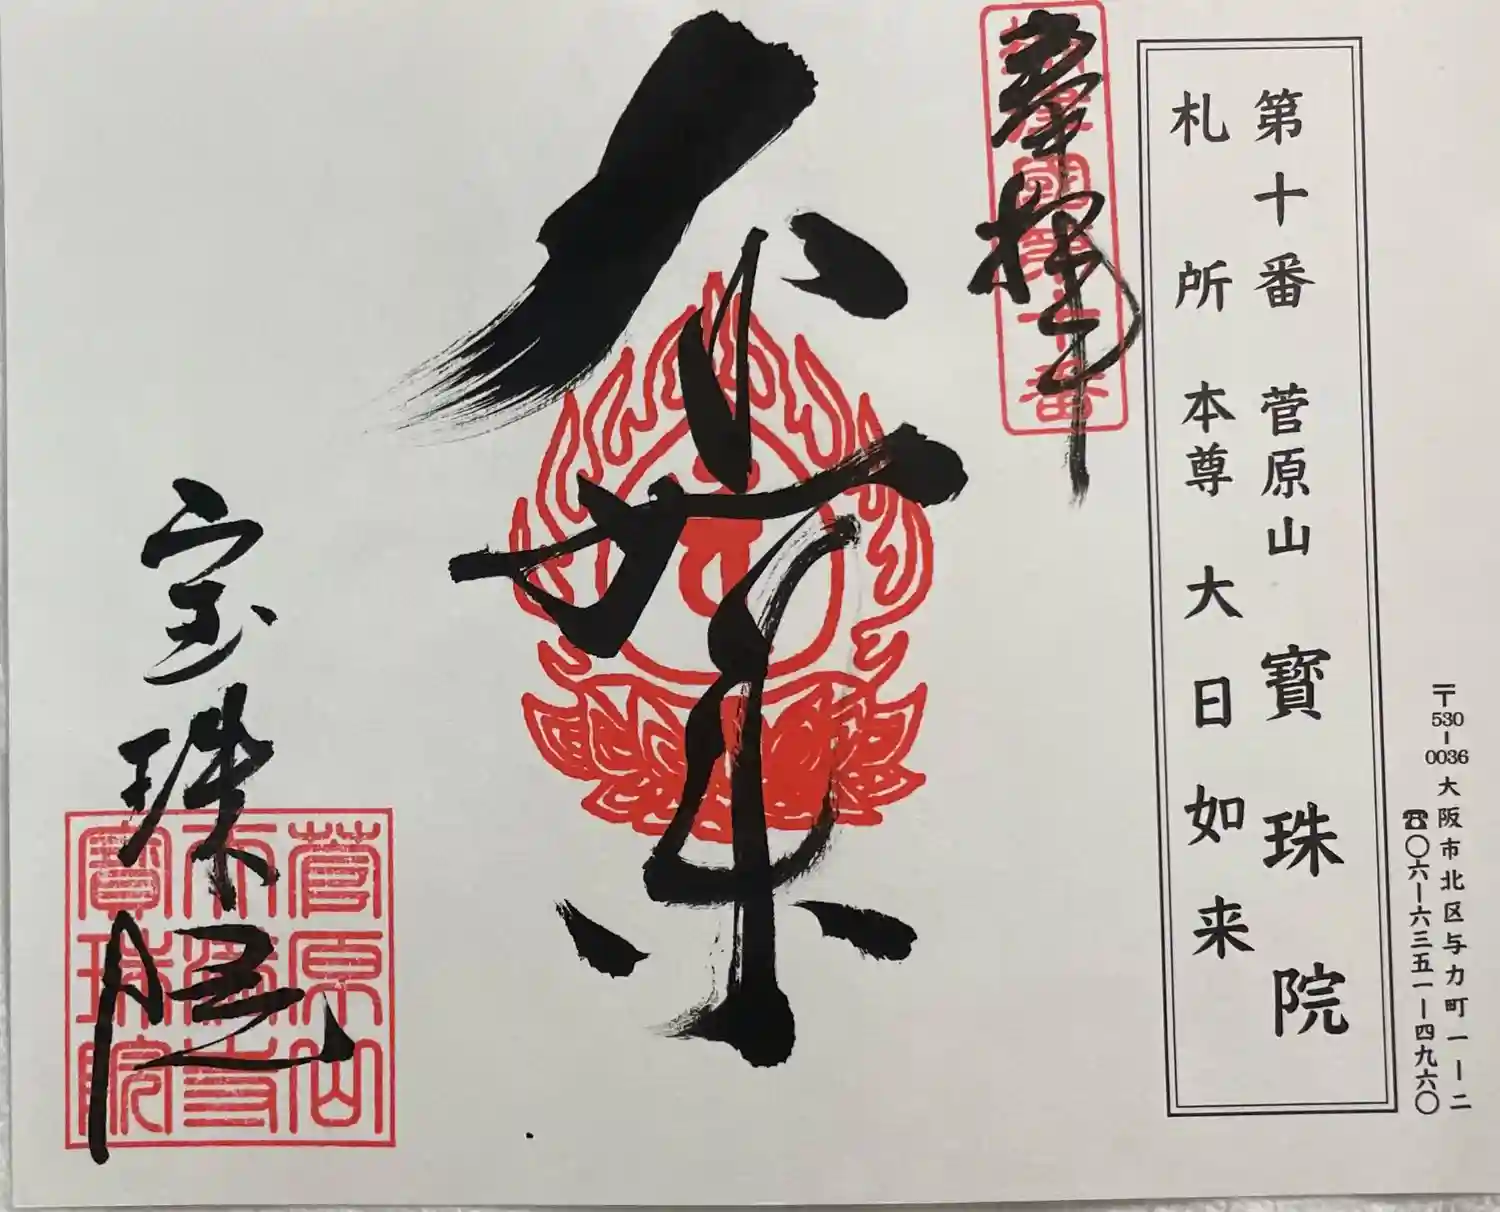 〒530-0036 大阪市北区与力町一ー二
☎〇六ー六三五一ー四九六〇
第十番 菅原山 寶珠院
札所 本尊 大日如来
奉拝
國第十番
宝珠院
菅原山
寶珠院